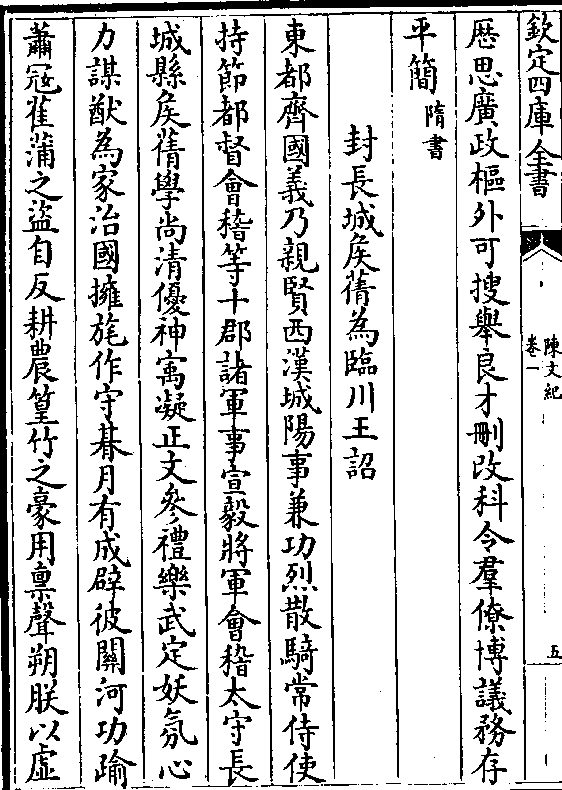 欽定四庫全書
陳文紀
卷一
五
厯思廣政樞外可搜舉良才刪改科令羣僚博議務存
平簡隋書
封長城矦蒨為臨川王詔
東都齊國義乃親賢西漢城陽事兼功烈散騎常侍使
持節都督會稽等十郡諸軍事宣毅將軍會稽太守長
城縣矦蒨學尚清優神寓凝正文參禮樂武定妖氛心
力謀猷為家治國擁旄作守朞月有成辟彼關河功踰
蕭冦萑蒲之盜自反耕農篁竹之豪用禀聲朔朕以虛